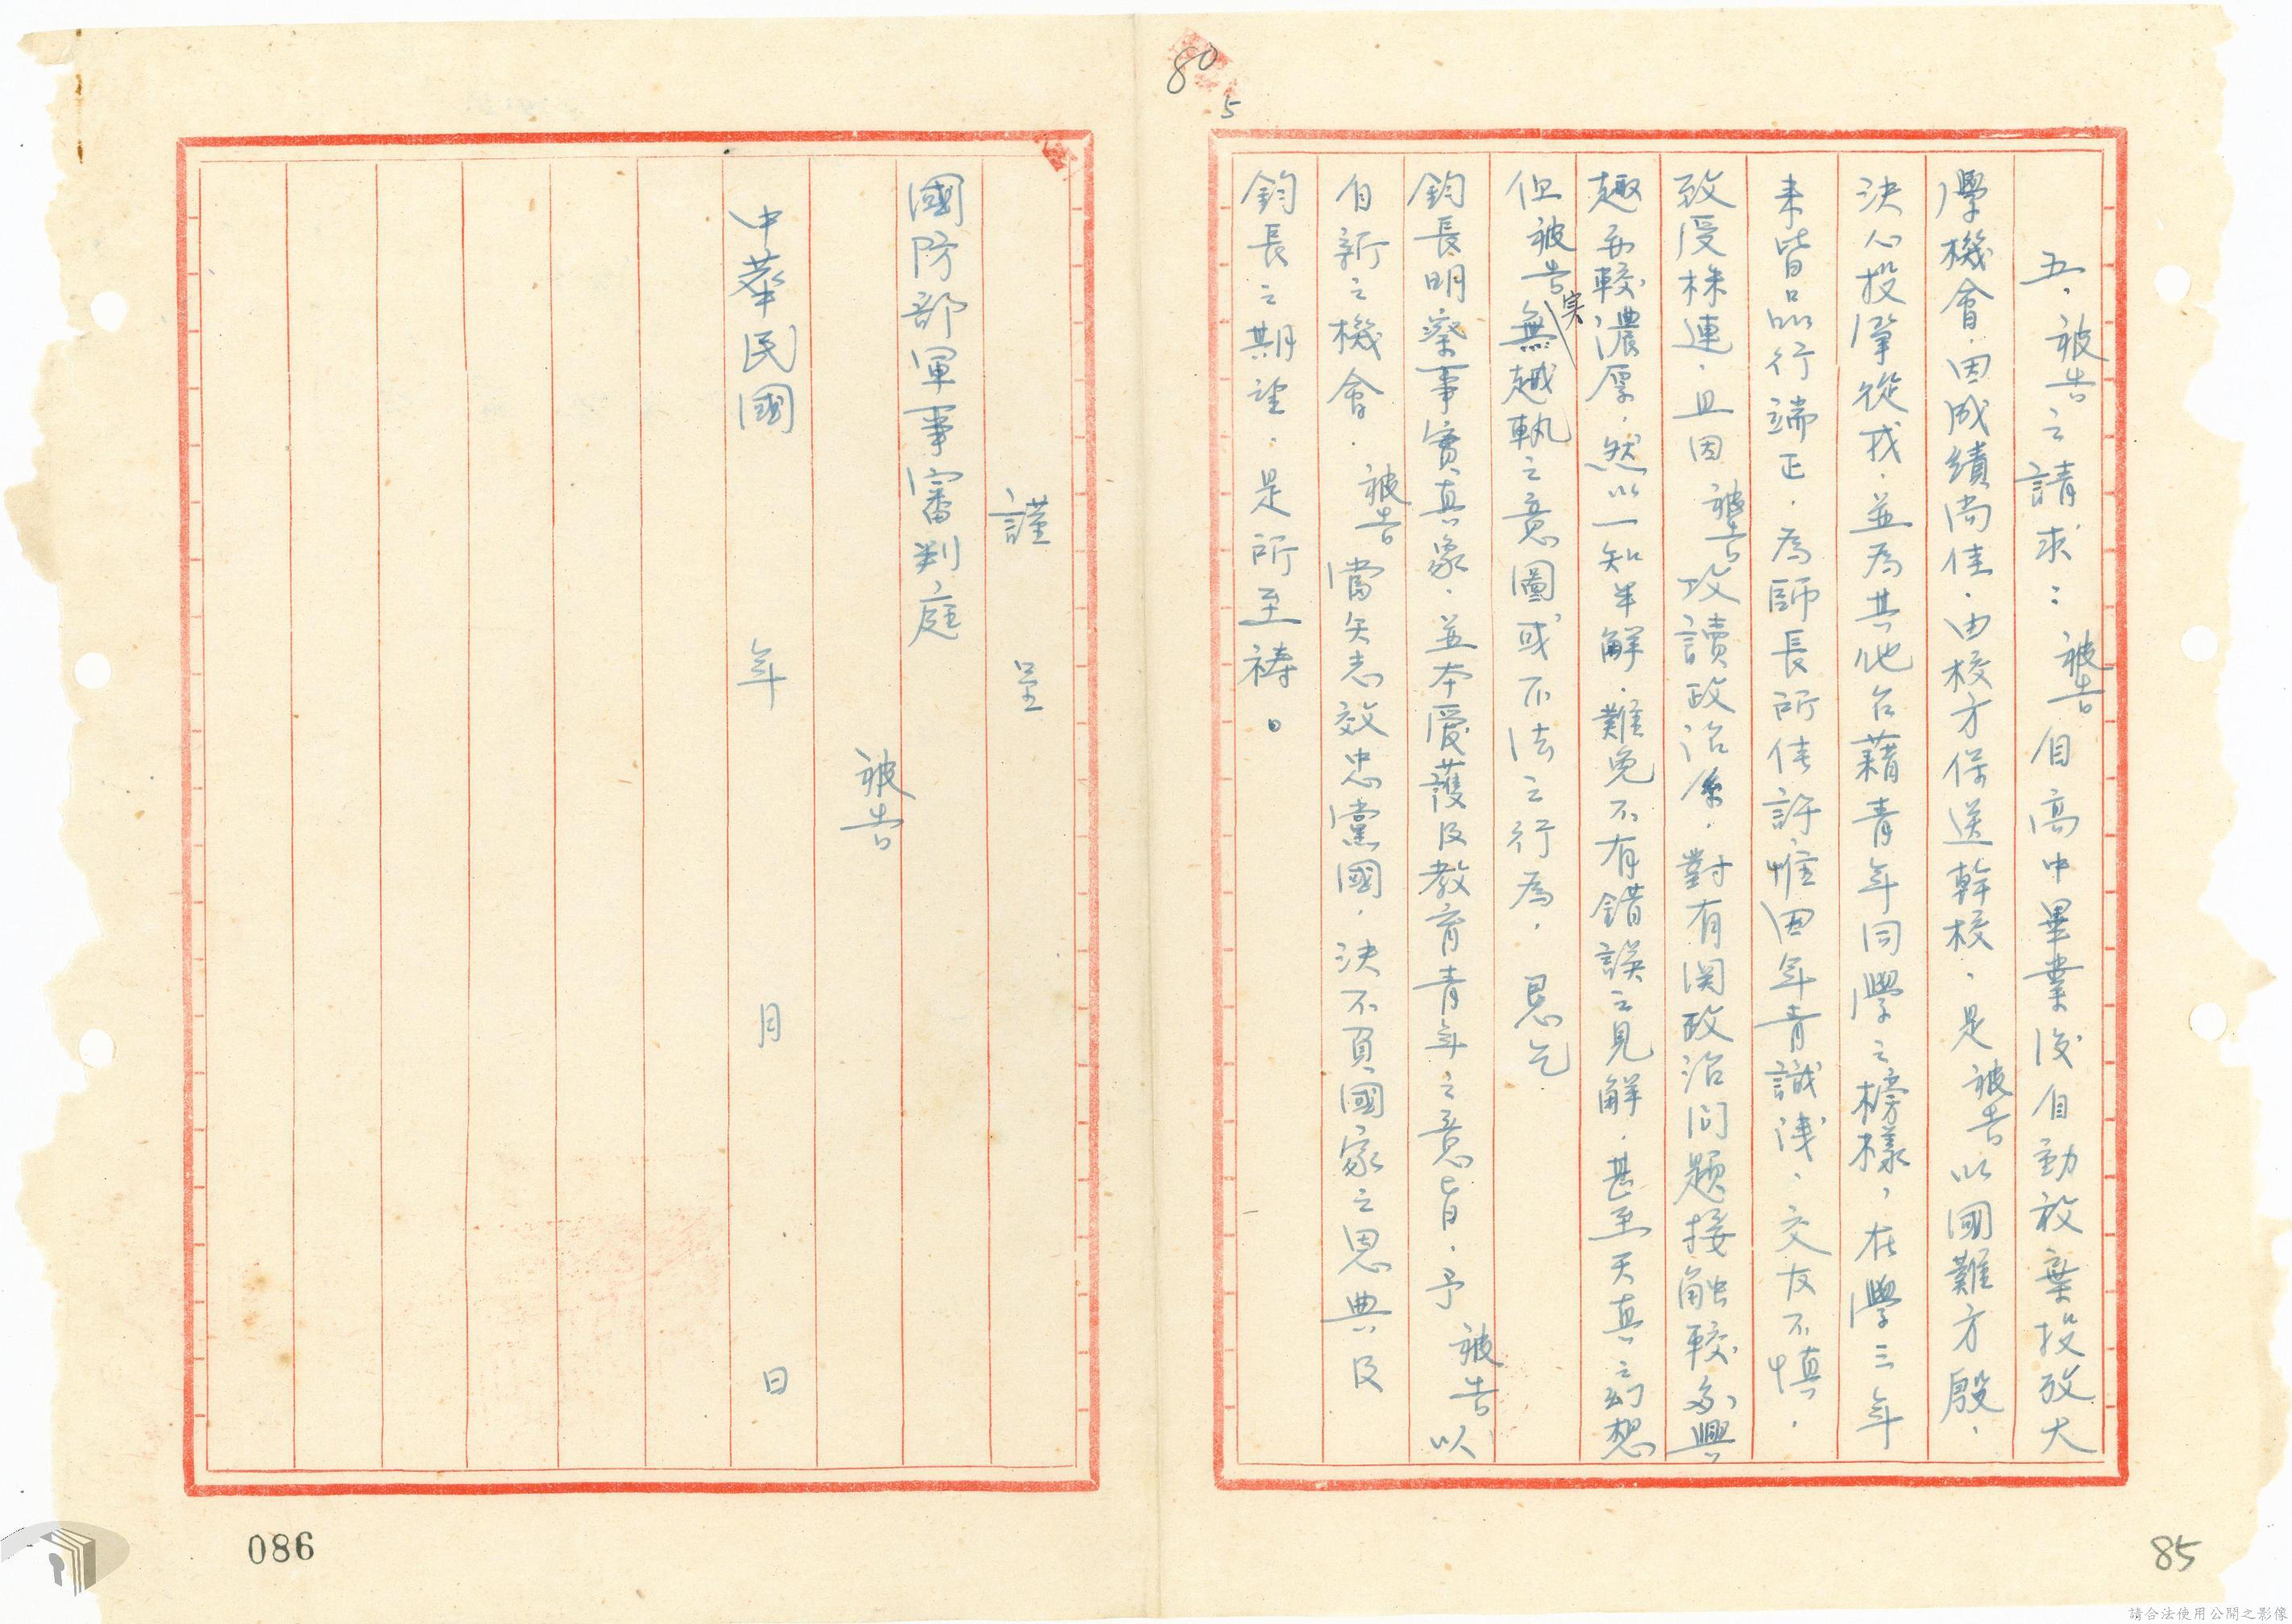 80
5
五、被告之請求：被告自高中畢業後自動放棄投攷大
學機會，因成績尚佳，由校方保送幹校，是被告以國難方殷，
決心投筆從戎，並為其他台藉青年同學之榜樣，在學三年
来皆品行端正，為師長所佳許惟因年青識淺，交友不慎，
致受株連，且因被告攻讀政治系，對有関政治问題接触較多，興
趣亦較濃厚，然以一知半解，難免不有錯誤之見解，甚至天真之幻想
但被告実無越軌之意圖或不法之行為，恳乞
鈞長明察事實真象，並本愛護及教育青年之意旨，予被告以
自新之機會，被告當矢志效忠黨國，決不負國家之恩典及
鈞長之期望，是所至禱。
85
謹 呈
國防部軍事審判庭
被告
中華民國 年 月 日
086
請合法使用公開之影像